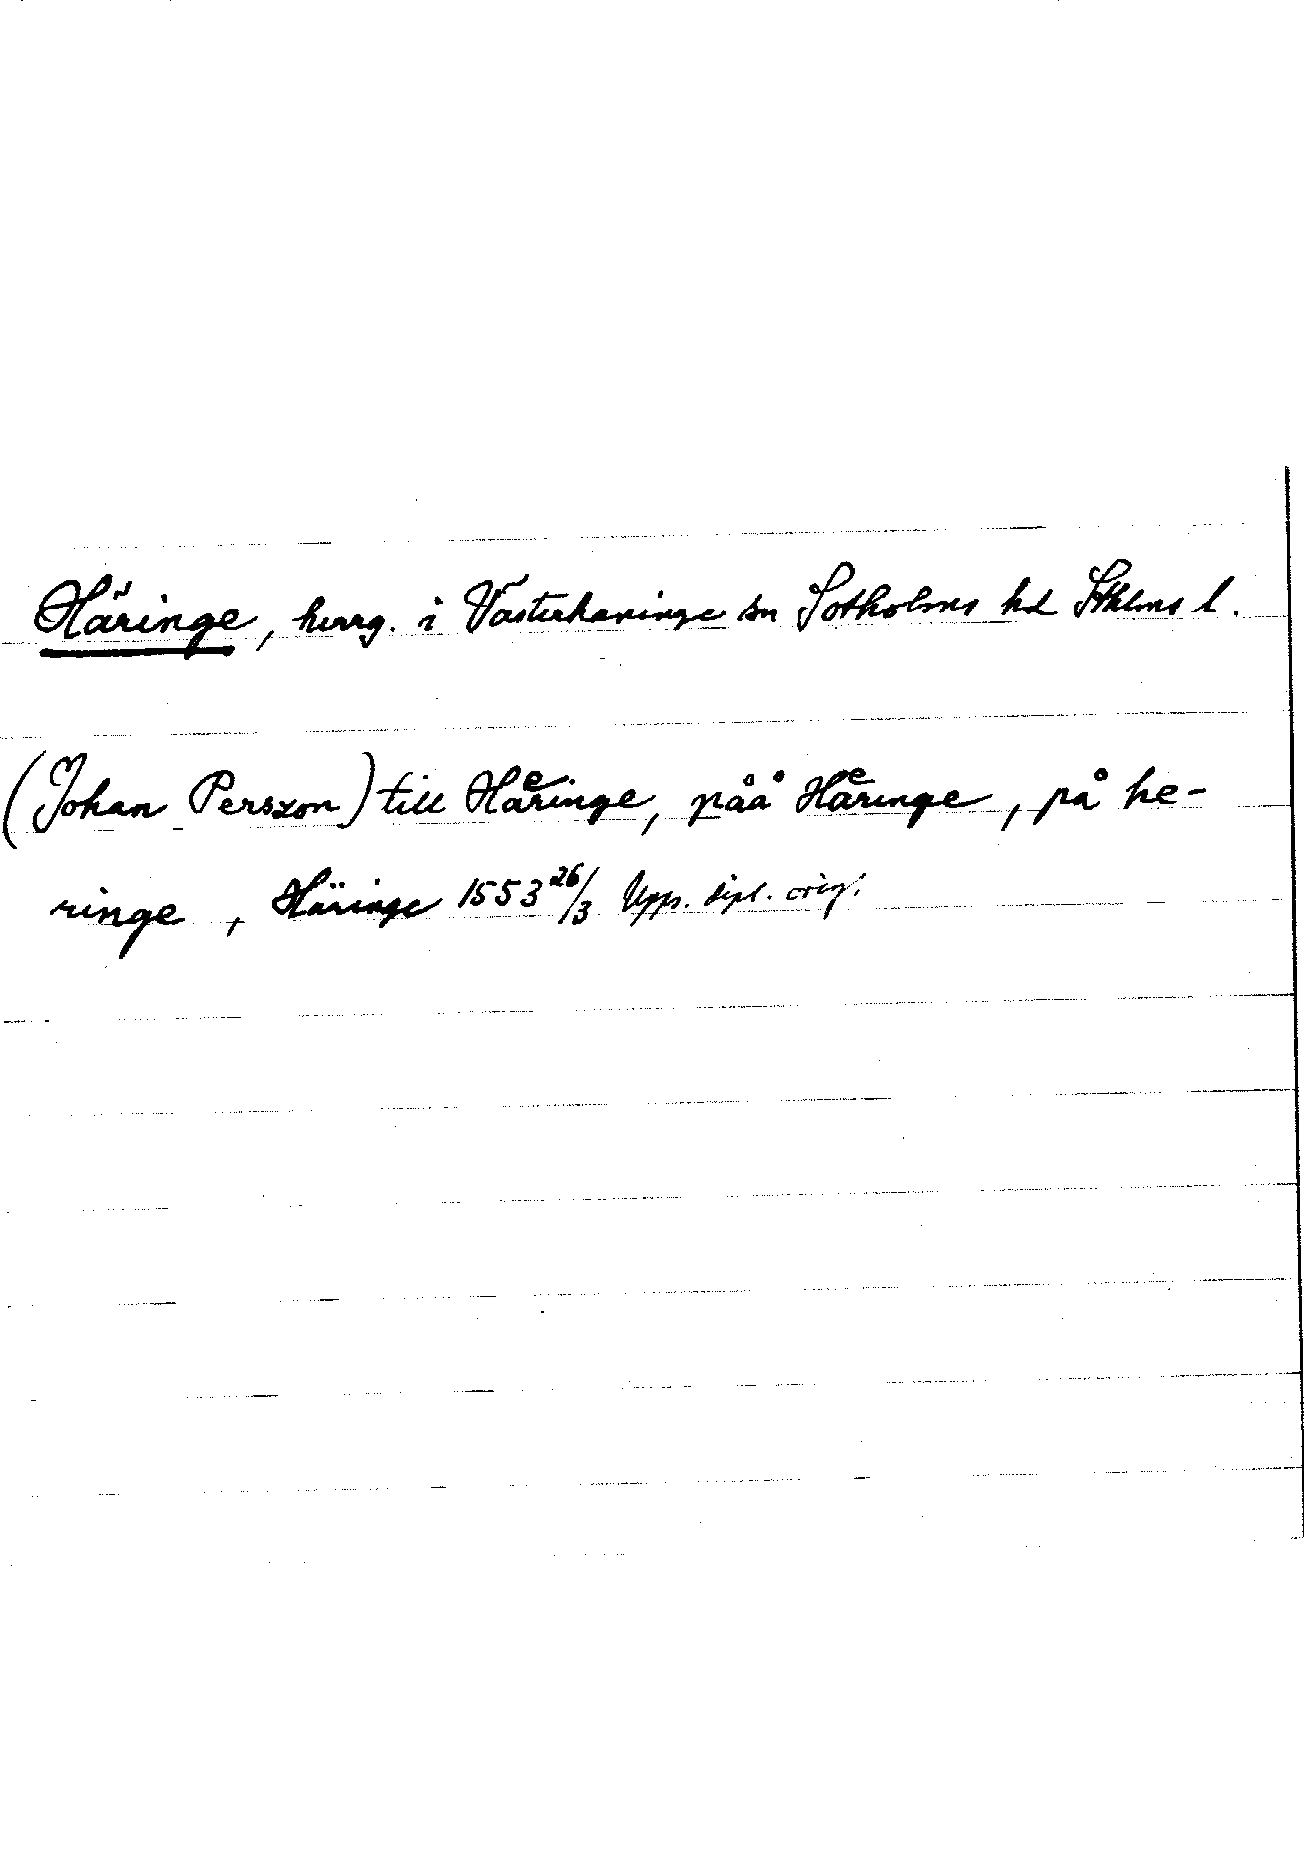 Häringe, herrg. i Västerhaninge sn Sotholms hd Sthlms l.
(Johan Perszon) till Haͤringe, påå Haͤringe, på he-
ringe, Häringe 1553 26/3 Upps. dipl. orig.